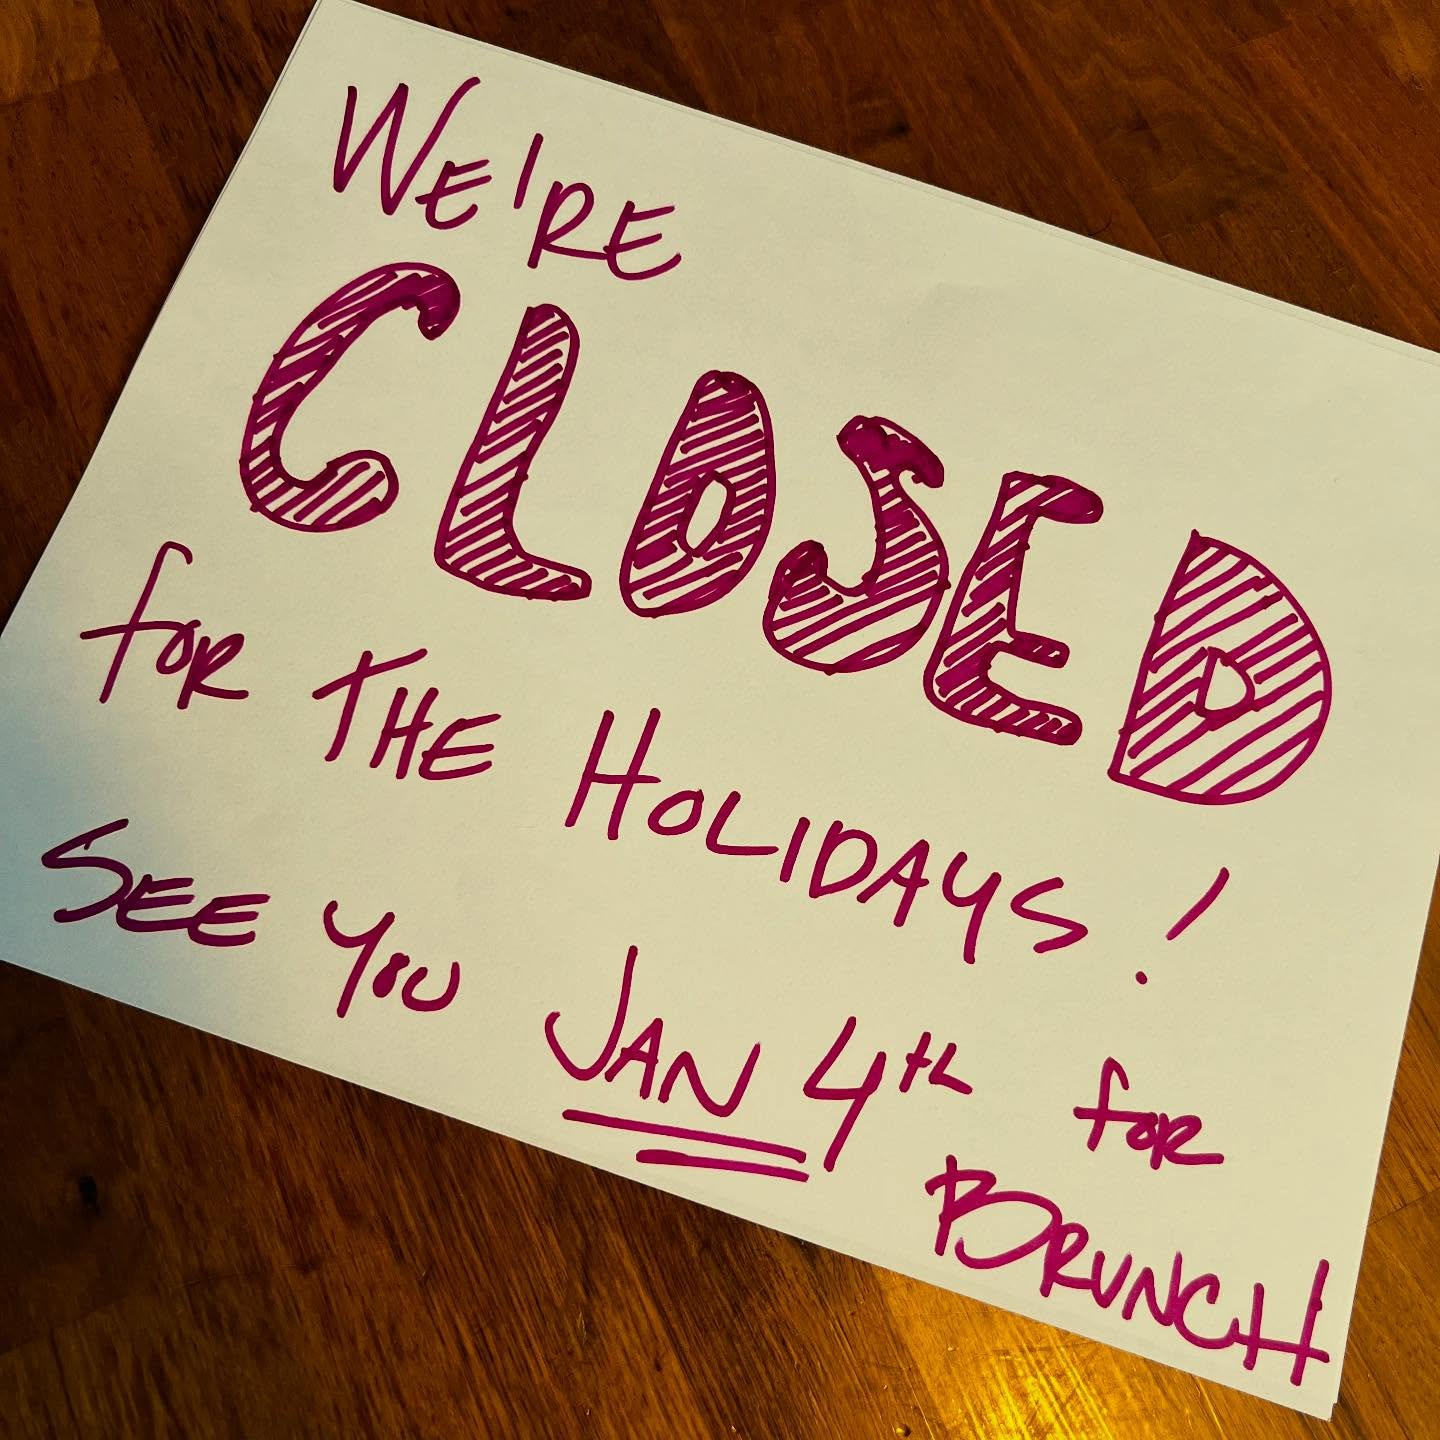 WE'RE
CLOSED
for THE HOLIDAYS!
SEE YOU JAN 4th for
BRUNCH